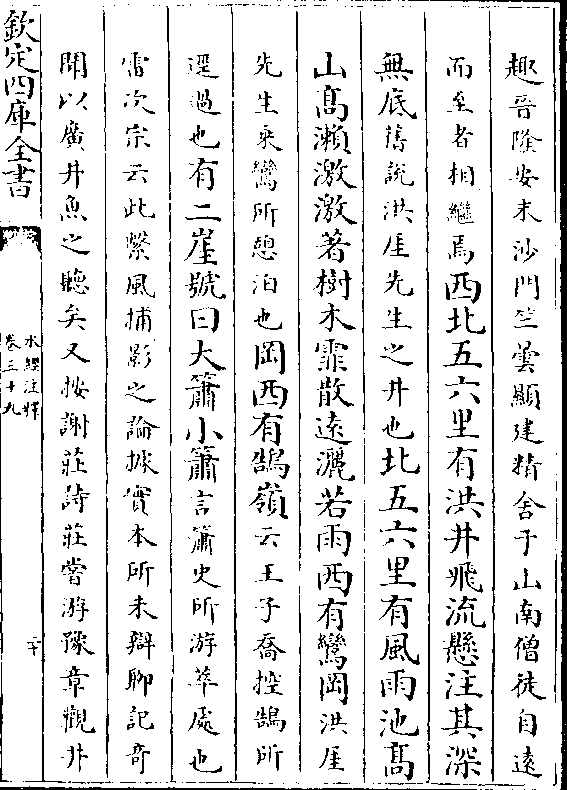 趣晉隆安末沙門竺曇顯建精舍于山南僧徒自遠
而至者相繼焉西北五六里有洪井飛流懸注其深
無底舊說洪厓先生之井也北五六里有風雨池髙
山髙瀨激激著樹木霏散遠灑若雨西有鸞岡洪厓
先生乘鸞所憩泊也岡西有鵠嶺云王子喬控鵠所
逕過也有二崖號曰大簫小簫言簫史所游萃處也
雷次宗云此繫風捕影之論據實本所未辯聊記奇
聞以廣井魚之聽矣又按謝莊詩莊嘗游豫章觀井
欽定四庫全書
水經注釋
卷三十九
二十